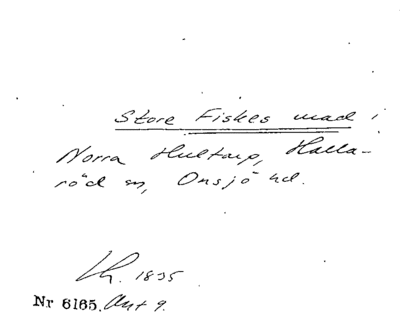 Store Fiskes mad i
Norra Hultarp, Halla-
röd sn, Onsjö hd.
Lh. 1835
Nr 6165. Ant 9.